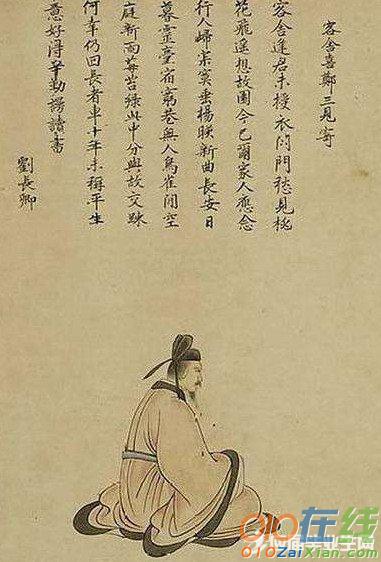 客舍喜鄭三見寄
客舍逢君未授衣閉門愁見桃
花飛遙想故園今已爾家人應念
行人歸寂寞垂楊映新曲長安日
暮靈臺宿窮巷無人鳥雀閒空
庭新雨莓苔綠此中分與故交踈
何幸仍回長者車十年未稱平生
意好得辛勤謾讀書
劉長卿
在线
o1oZaiXian.Com